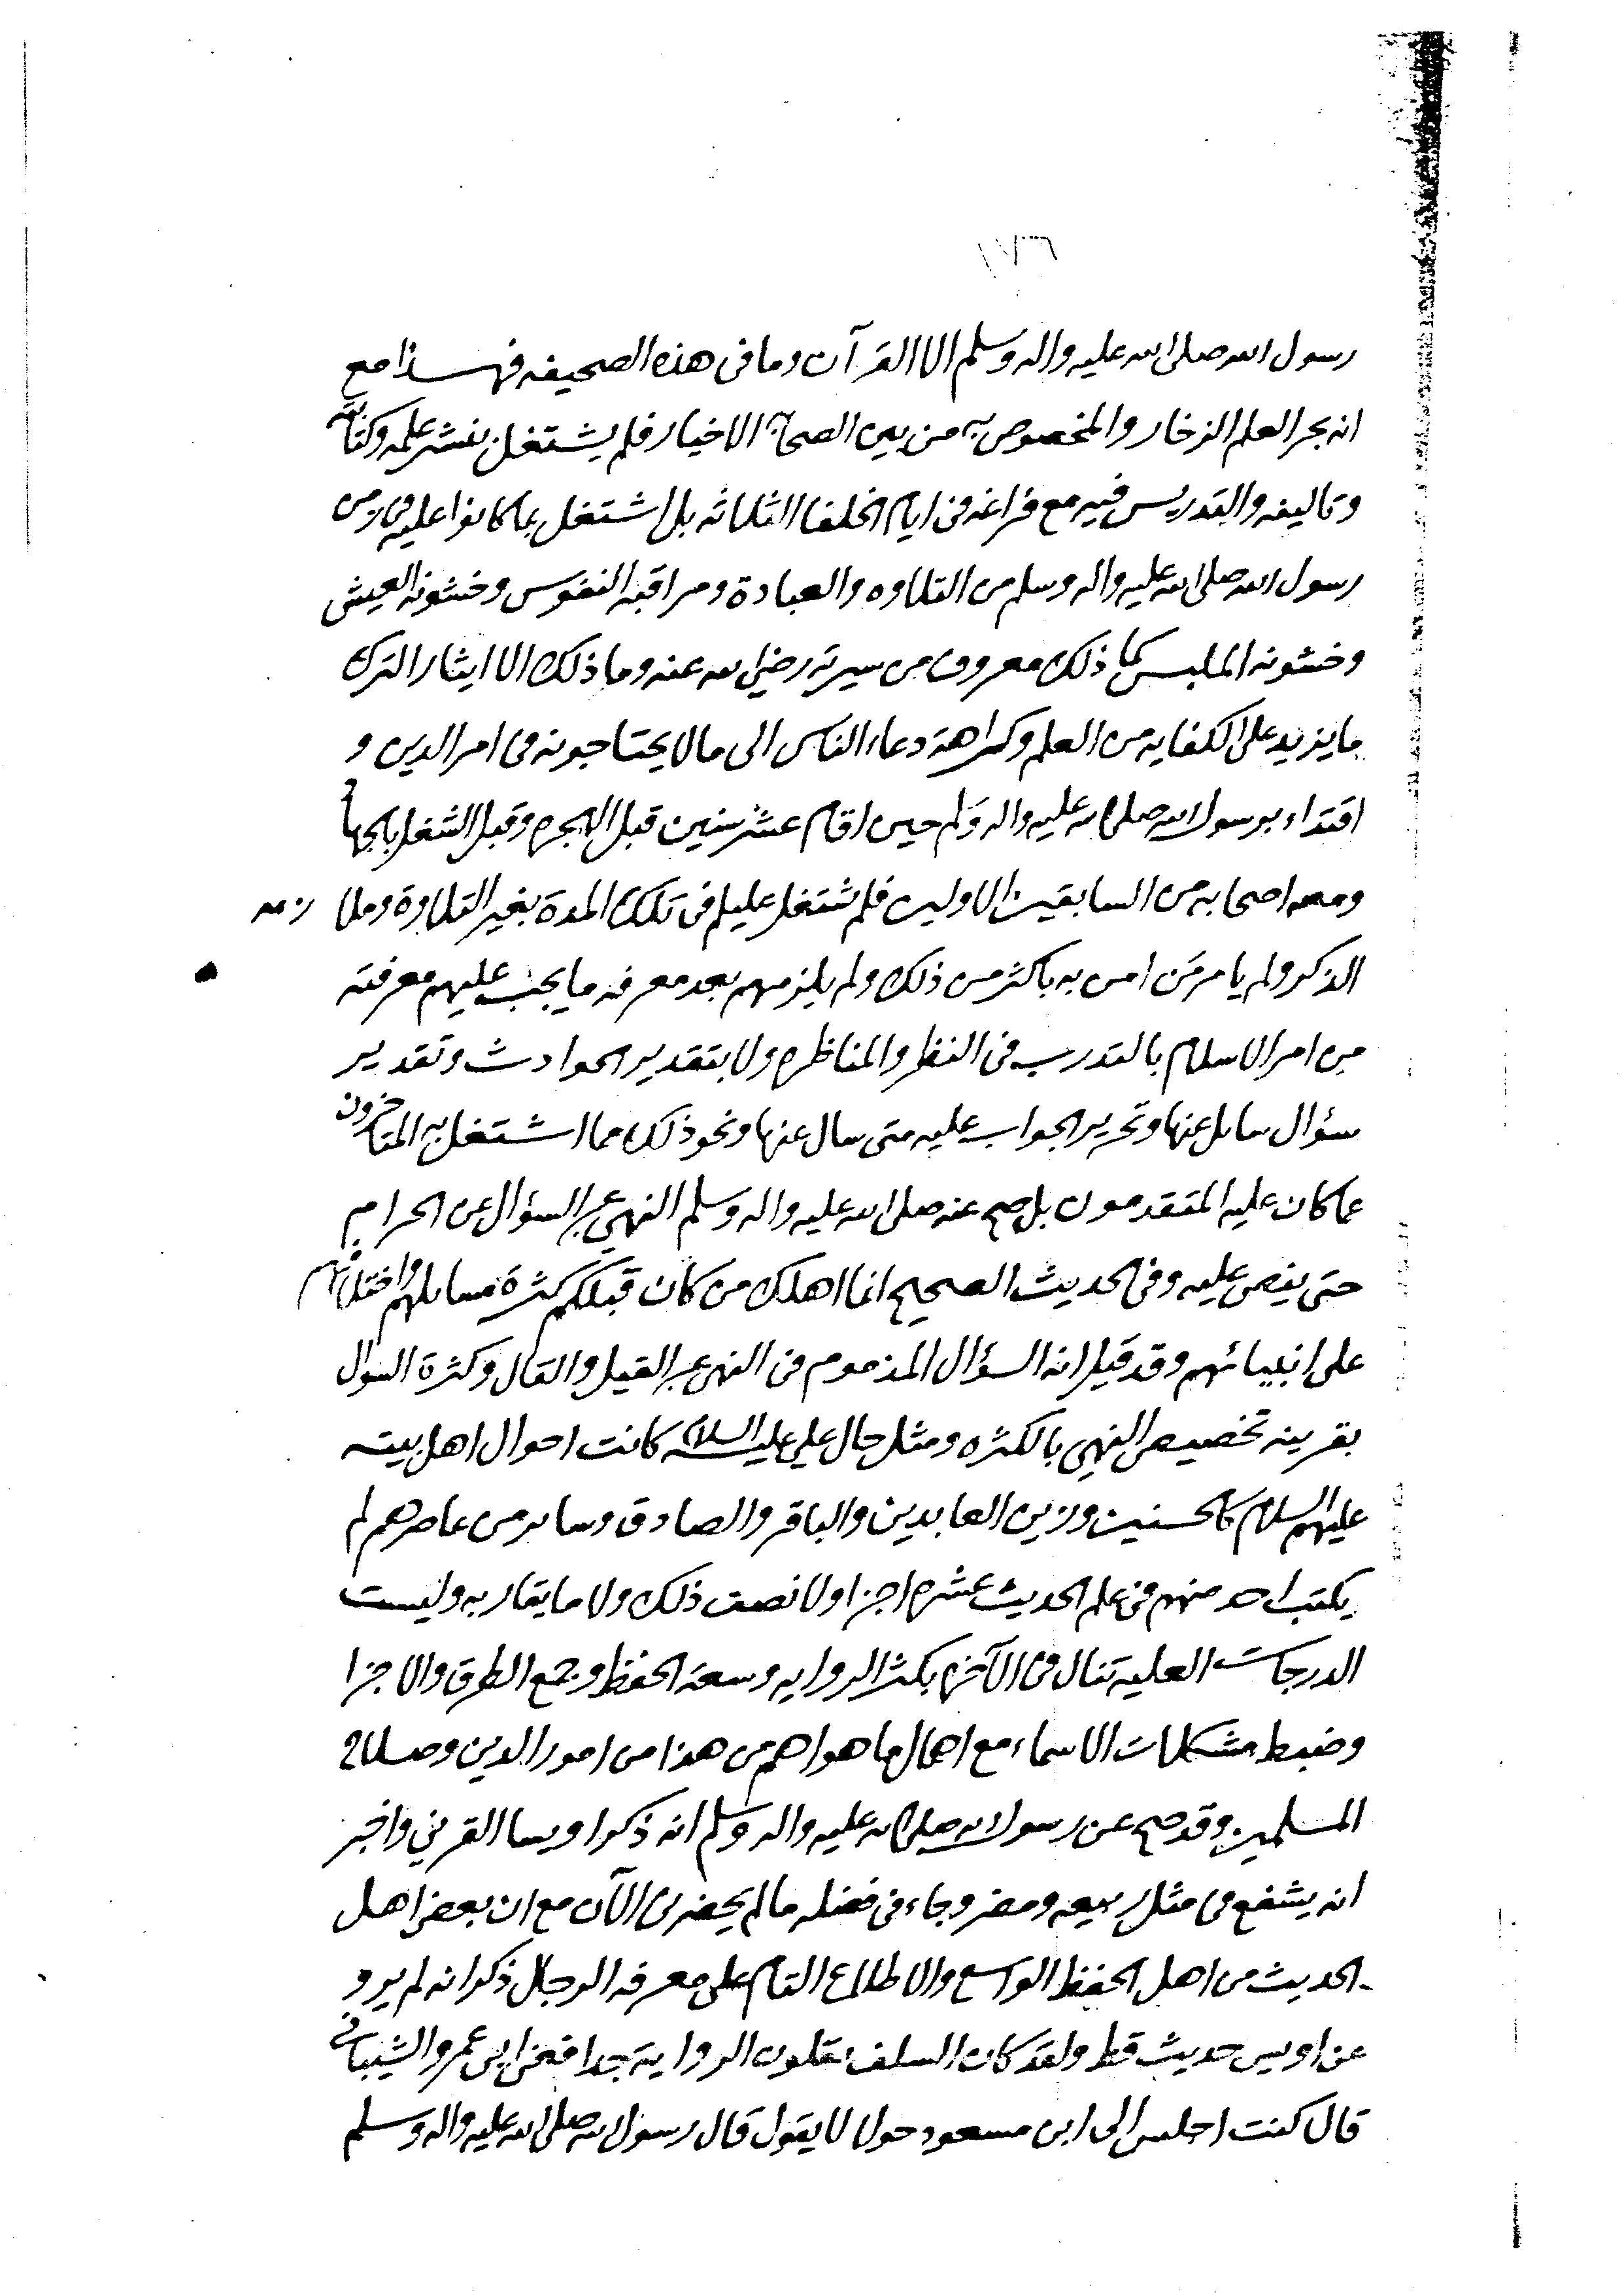 ١٧٦
رسول الله صلى الله عليه واله وسلم الا القرآن وما فى هذه الصحيفه فهذا مع
انه بحر العلم الزخار والمخصوص به من بين الصحابه الاخيار فلم يشتغل بنشر علمه وكتابته
وتاليفه والتدريس فيه مع فراغه فى ايام الخلفا الثلاثه بل اشتغل بما كانوا عليه فى زمن
رسول الله صلى الله عليه واله وسلم من التلاوه والعبادة ومراقبه النفوس وخشونه العيش
وخشونه الملبس كما ذلك معروف من سيرته رضي الله عنه وما ذلك الا ايثار الترك
ما يزيد على الكفايه من العلم وكراهة دعاء الناس الى مالا يحتاجونه فى امر الدين و
اقتداء برسول الله صلى الله عليه واله وسلم حين اقام عشر سنين قبل الهجره وقبل الشغل بالجهاد
ومعه اصحابه من السابقين الاولين فلم يشتغل عليلم فى تلك المدة بغير التلاوة وملازمه
الذكر ولم يامر من امن به باكثر من ذلك ولم يلزمهم بعد معرفه ما يجب عليهم معرفته
من امر الاسلام بالتدرب فى النظر والمناظره ولا بتقدير الحوادث وتقدير
سؤال سايل عنها وتحرير الجواب عليه متى سال عنها ونحو ذلك مما اشتغل به المتاخرون
عما كان عليه المتقدمون بل صح عنه صلى الله عليه واله وسلم النهي عن السؤال عن الحرام
حتى ينص عليه وفى الحديث الصحيح انما اهلك من كان قبلكم كثرة مسايلهم واختلافهم
على انبيائهم وقد قيل انه السؤال المذموم فى النهى عن القيل والقال وكثرة السوال
بقرينه تخصيص النهي بالكثره ومثل حال علي عليه السلام كانت احوال اهل بيته
عليهم السلام كالحسنين وزين العابدين والباقر والصادق وساير من عاصرهم لم
يكتب احد منهم فى علم الحديث عشره اجزا ولا نصف ذلك ولا ما يقاربه وليست
الدرجات العليه تنال فى الآخره بكثر الروايه وسعة الحفظ وجمع الطرق والاجزا
وضبط مشكلات الاسماء مع اهمال ما هو اهم من هذا من امور الدين وصلاح
المسلمين وقد صح عن رسول الله صلى الله عليه واله وسلم انه ذكر اويسا القرني واخبر
انه يشفع فى مثل ربيعه ومضر وجاء فى فضله مالم يحضرنى الآن مع ان بعض اهل
الحديث من اهل الحفظ الواسع والاطلاع التام على معرفه الرجال ذكر انه لم يرو
عن اويس حديث قط ولقد كان السلف يقلون الروايه جدا فعن ابى عمرو الشيبانى
قال كنت اجلس الى ابن مسعود حولا لا يقول قال رسول الله صلى الله عليه واله وسلم